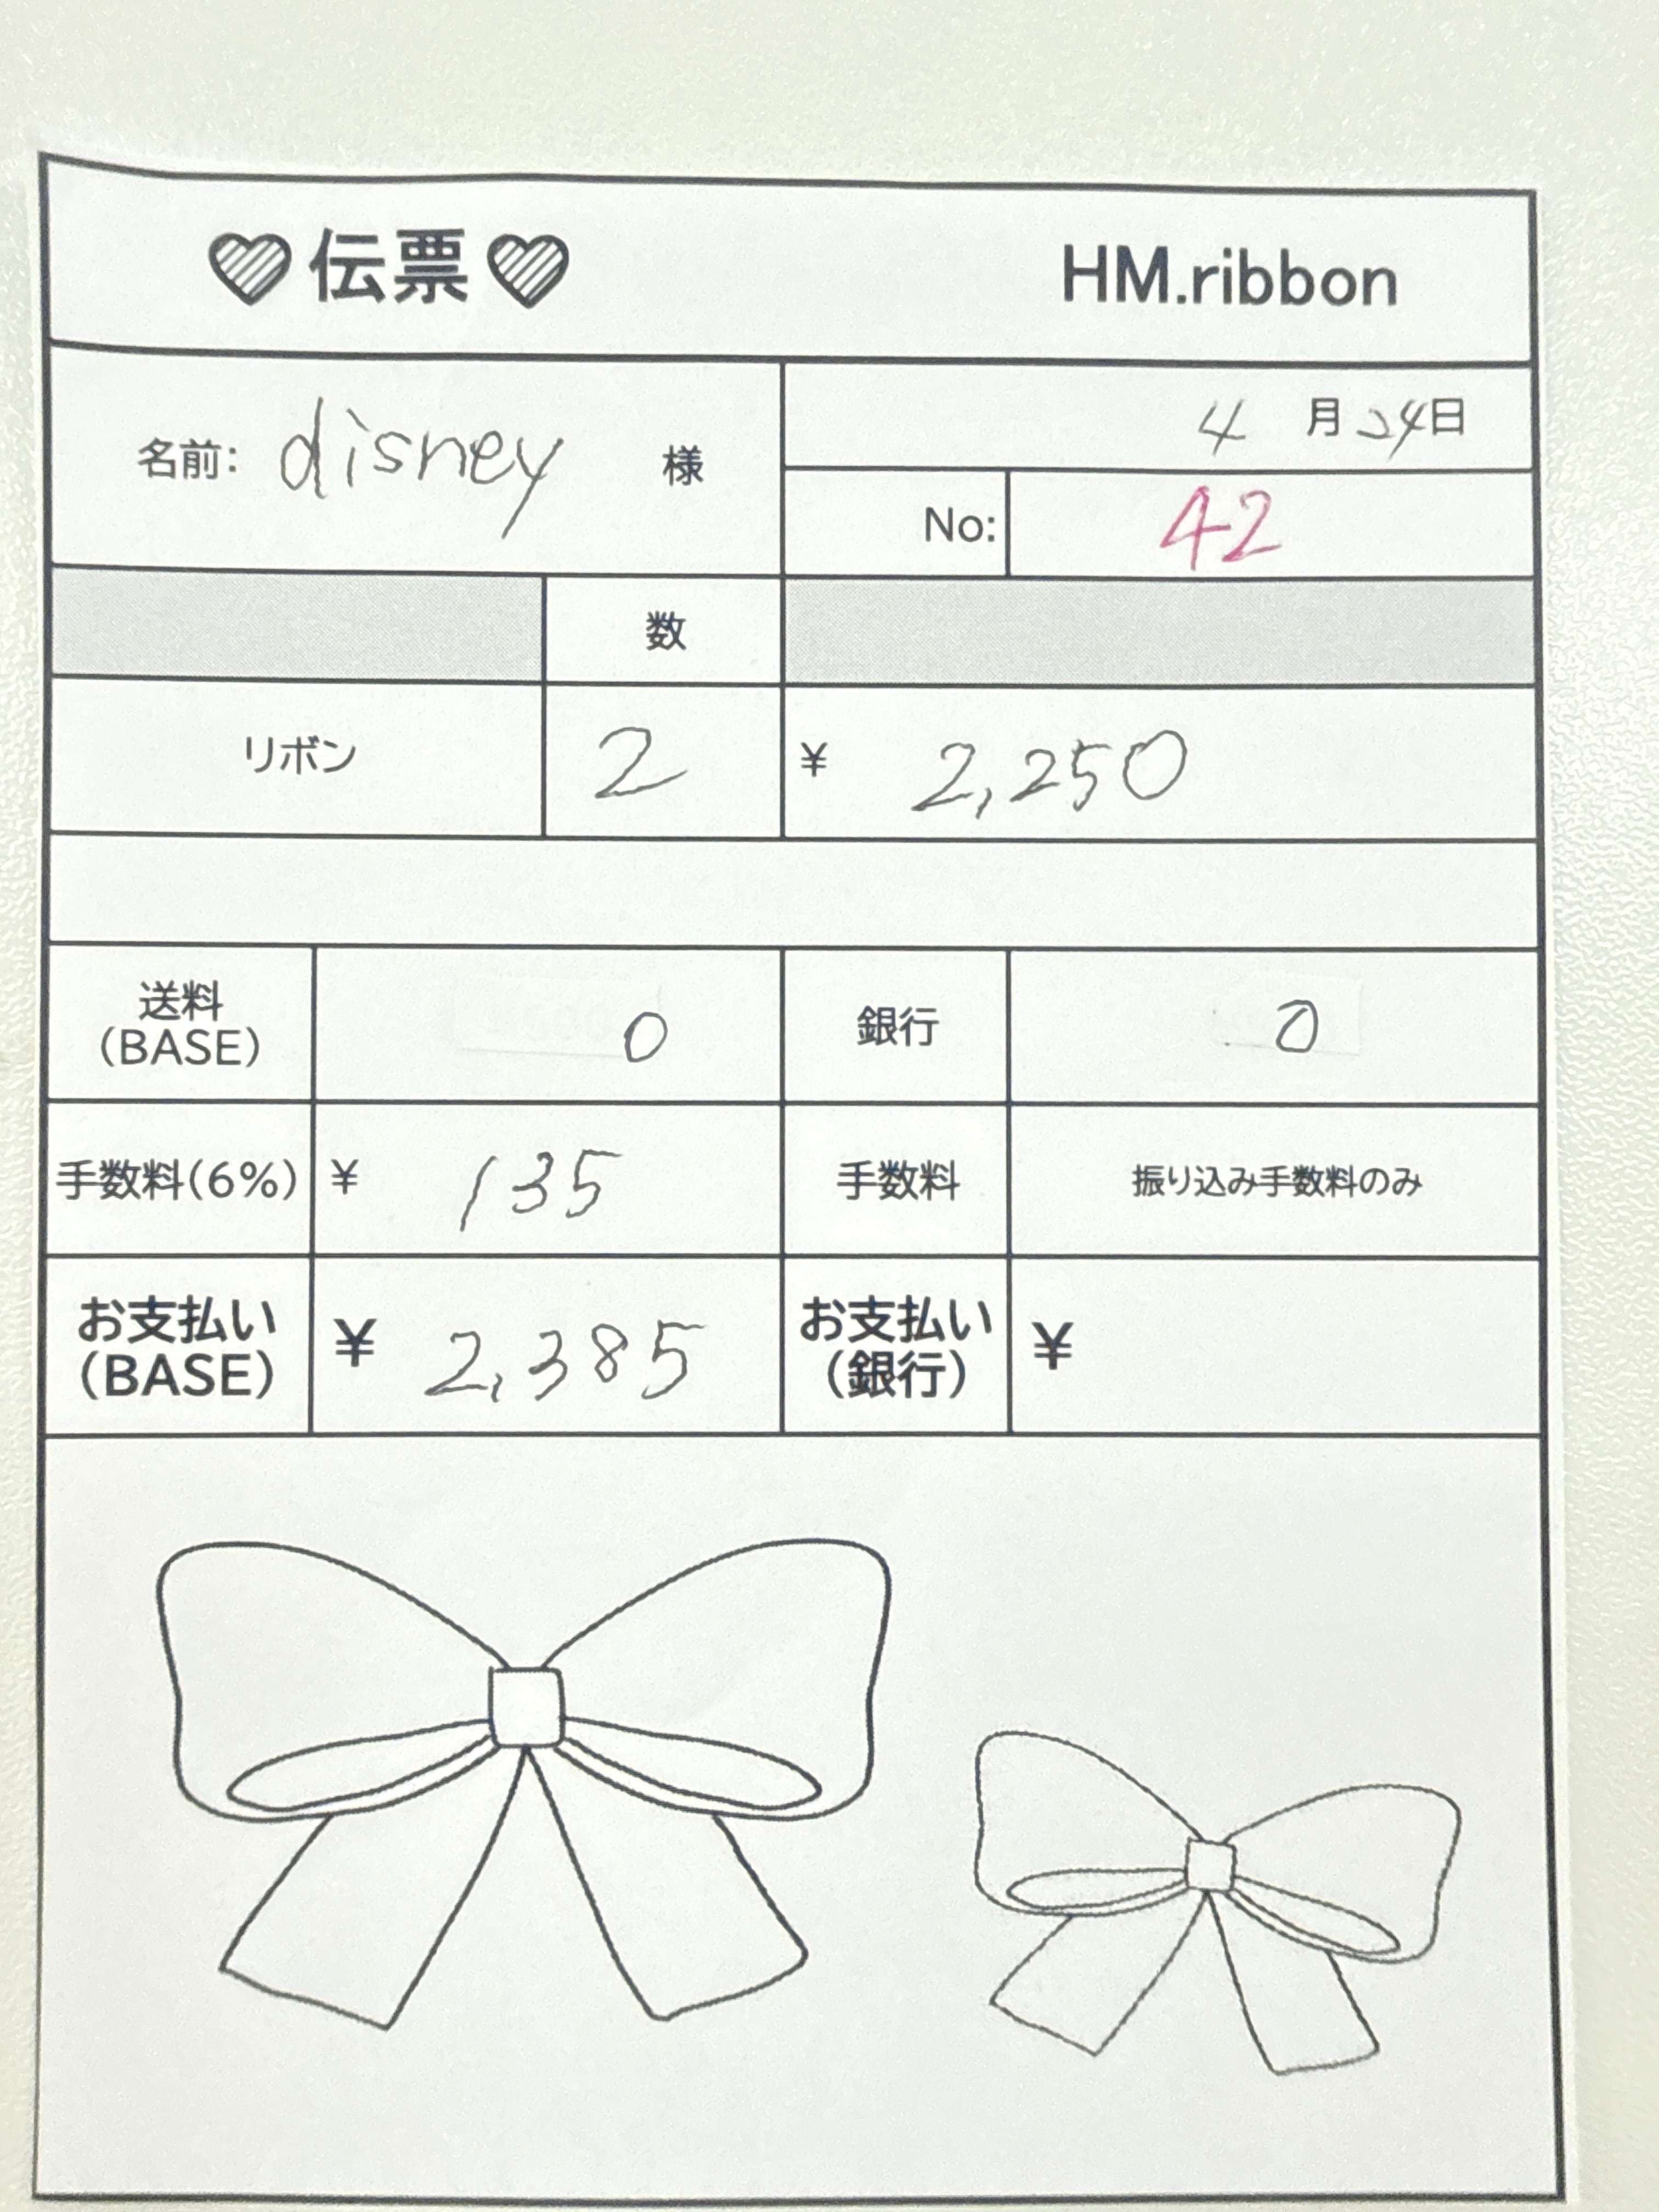 ♡伝票♡ HM.ribbon
名前: disney 様
4月24日
No: 42
数
リボン 2 ¥ 2,250
送料(BASE) 0 銀行 0
手数料(6%) ¥ 135 手数料 振り込み手数料のみ
お支払い(BASE) ¥ 2,385 お支払い(銀行) ¥